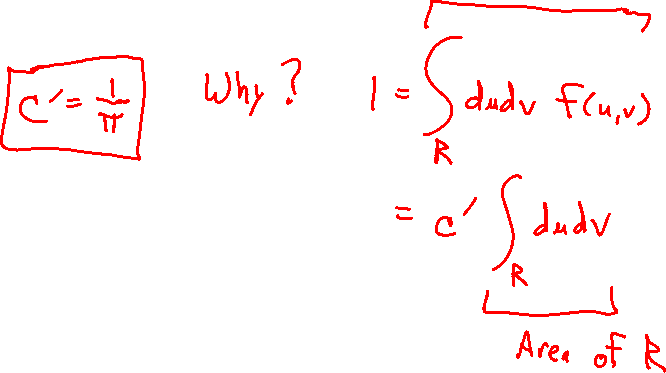 C′ = 1/π Why? 1 = ∫_R dudv f(u,v)
= C′ ∫_R dudv
Area of R